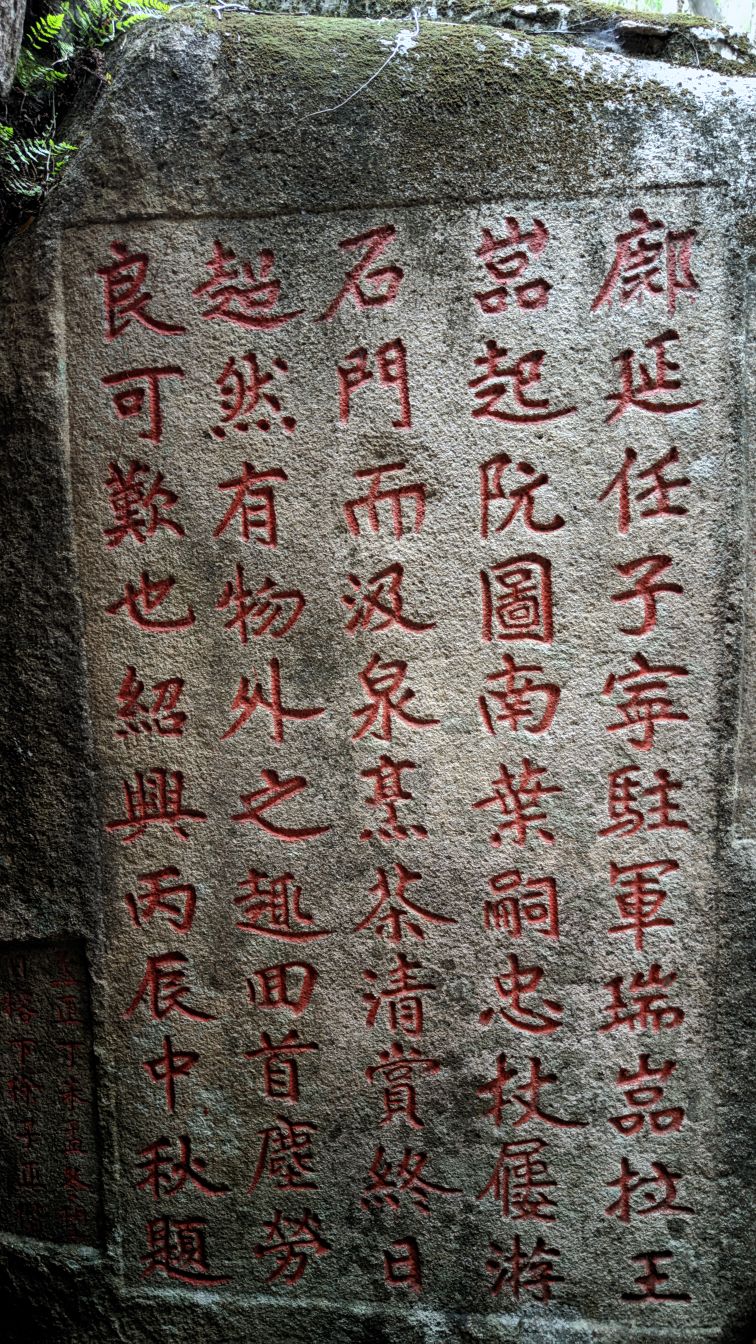 鄜延任子寧駐軍瑞嵓拉王
嵓起阮圖南葉嗣忠杖屨游
石門而汲泉烹茶清賞終日
超然有物外之趣囬首塵勞
良可歎也紹興丙辰中秋題
至正丁未孟